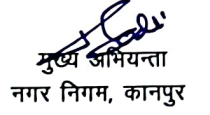 मुख्य अभियन्ता
नगर निगम, कानपुर